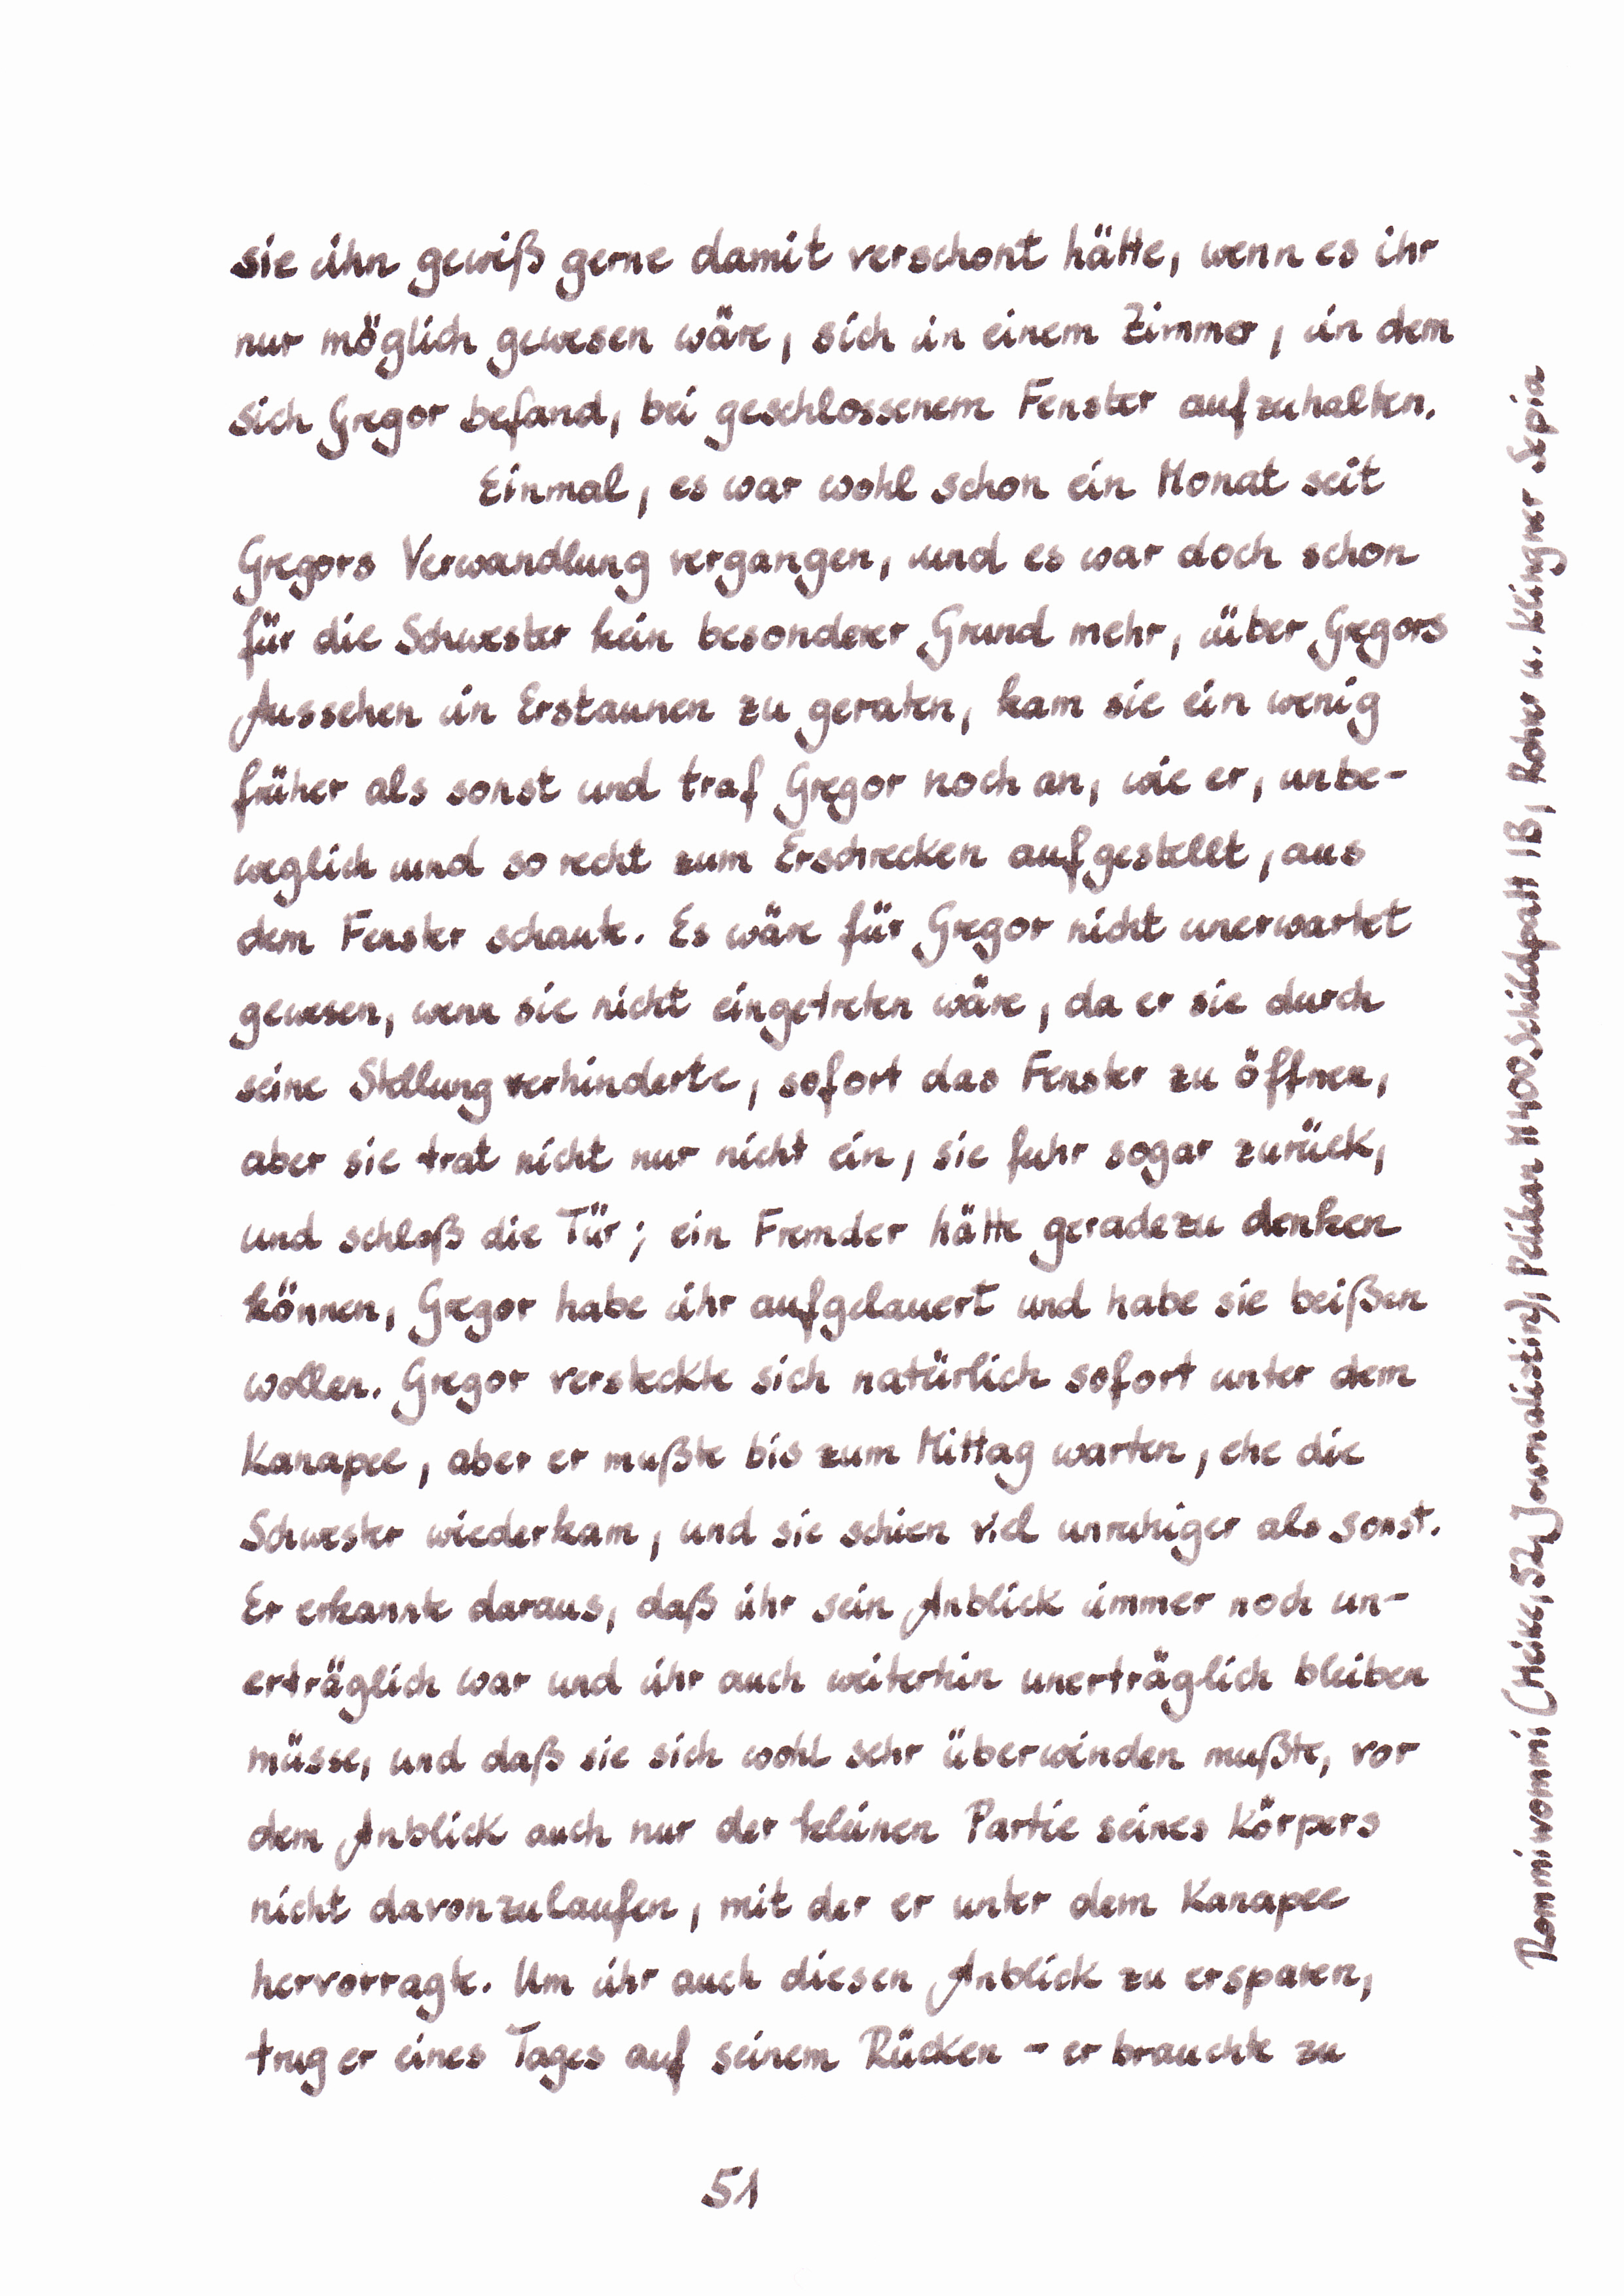 sie ihn gewiß gerne damit verschont hätte, wenn es ihr
nur möglich gewesen wäre, sich in einem Zimmer, in dem
sich Gregor befand, bei geschlossenem Fenster aufzuhalten.
Einmal, es war wohl schon ein Monat seit
Gregors Verwandlung vergangen, und es war doch schon
für die Schwester kein besonderer Grund mehr, über Gregors
Aussehen in Erstaunen zu geraten, kam sie ein wenig
früher als sonst und traf Gregor noch an, wie er, unbe-
weglich und so recht zum Erschrecken aufgestellt, aus
dem Fenster schaute. Es wäre für Gregor nicht unerwartet
gewesen, wenn sie nicht eingetreten wäre, da er sie durch
seine Stellung verhinderte, sofort das Fenster zu öffnen,
aber sie trat nicht nur nicht ein, sie fuhr sogar zurück,
und schloß die Tür; ein Fremder hätte geradezu denken
können, Gregor habe ihr aufgelauert und habe sie beißen
wollen. Gregor versteckte sich natürlich sofort unter dem
Kanapee, aber er mußte bis zum Mittag warten, ehe die
Schwester wiederkam, und sie schien viel unruhiger als sonst.
Er erkannte daraus, daß ihr sein Anblick immer noch un-
erträglich war und ihr auch weiterhin unerträglich bleiben
müsse, und daß sie sich wohl sehr überwinden mußte, vor
dem Anblick auch nur der kleinen Partie seines Körpers
nicht davonzulaufen, mit der er unter dem Kanapee
hervorragte. Um ihr auch diesen Anblick zu ersparen,
trug er eines Tages auf seinem Rücken - er brauchte zu
51
Romminommi (Heike, 52, Journalistin), Pelikan M400 Schildpatt IB, Rohrer u. Klingner Sepia